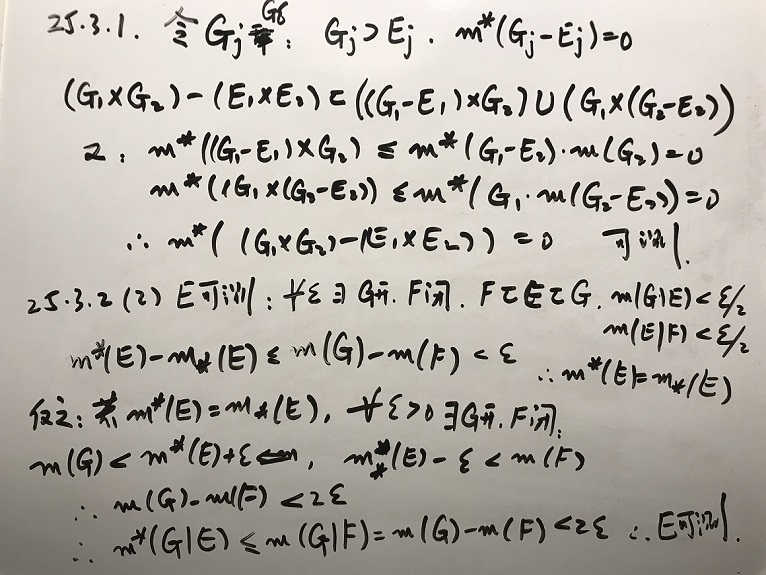 25.3.1. 令 Gj Gδ集: Gj⊃Ej. m*(Gj-Ej)=0
(G₁×G₂)-(E₁×E₂)⊂((G₁-E₁)×G₂)∪(G₁×(G₂-E₂))
又: m*((G₁-E₁)×G₂) ≤ m*(G₁-E₂)·m(G₂)=0
m*((G₁×(G₂-E₂)) ≤ m*(G₁·m(G₂-E₂))=0
∴ m*((G₁×G₂)-(E₁×E₂))=0 可测.
25.3.2 (2) E可测: ∀ε ∃G开. F闭. F⊂E⊂G. m(G|E)<ε/2
m(E|F)<ε/2
m*(E)-m⁎(E) ≤ m(G)-m(F) < ε ∴ m*(E)=m⁎(E)
反之: 若 m*(E)=m⁎(E), ∀ε>0 ∃G开. F闭:
m(G)<m*(E)+ε, m⁎(E)-ε<m(F)
∴ m(G)-m(F)<2ε
∴ m*(G|E) ≤ m(G|F)=m(G)-m(F)<2ε ∴ E可测.